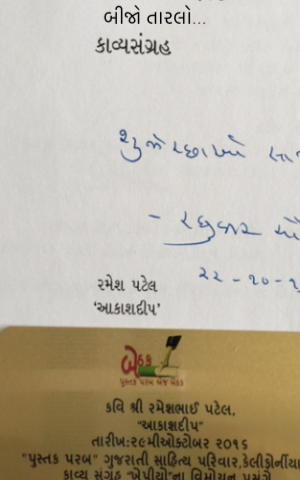 બીજો તારલો...
કાવ્યસંગ્રહ
રમેશ પટેલ
'આકાશદીપ'
બેઠક
પુસ્તક પરબ બેજ બેઠક
કવિ શ્રી રમેશભાઈ પટેલ.
"આકાશદીપ"
તારીખ:૨૯મીઓક્ટોબર ૨૦૧૬
"પુસ્તક પરબ" ગુજરાતી સાહિત્ય પરિવાર,કેલીફોર્નીયા
કાવ્ય સંગ્રહ "ખેપીયો"ના વિમોચન પ્રસંગે